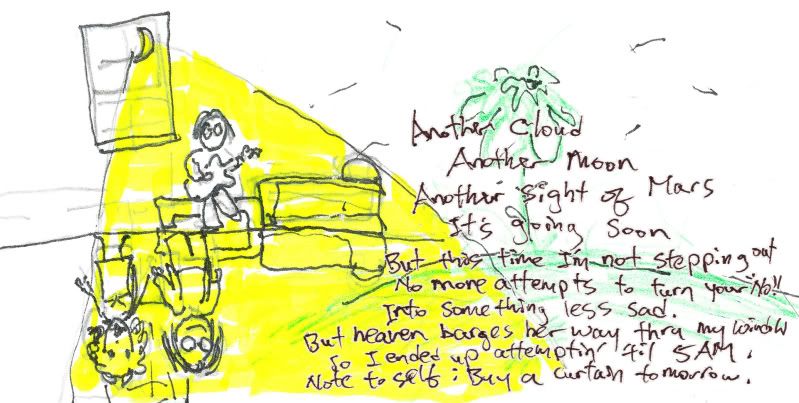 Another Cloud
Another Moon
Another sight of Mars
It's going soon
But this time I'm not stepping out
No more attempts to turn your "No!"
Into something less sad.
But heaven barges her way thru my window
So I ended up attemptin' 'til 5AM.
Note to self: Buy a curtain tomorrow.